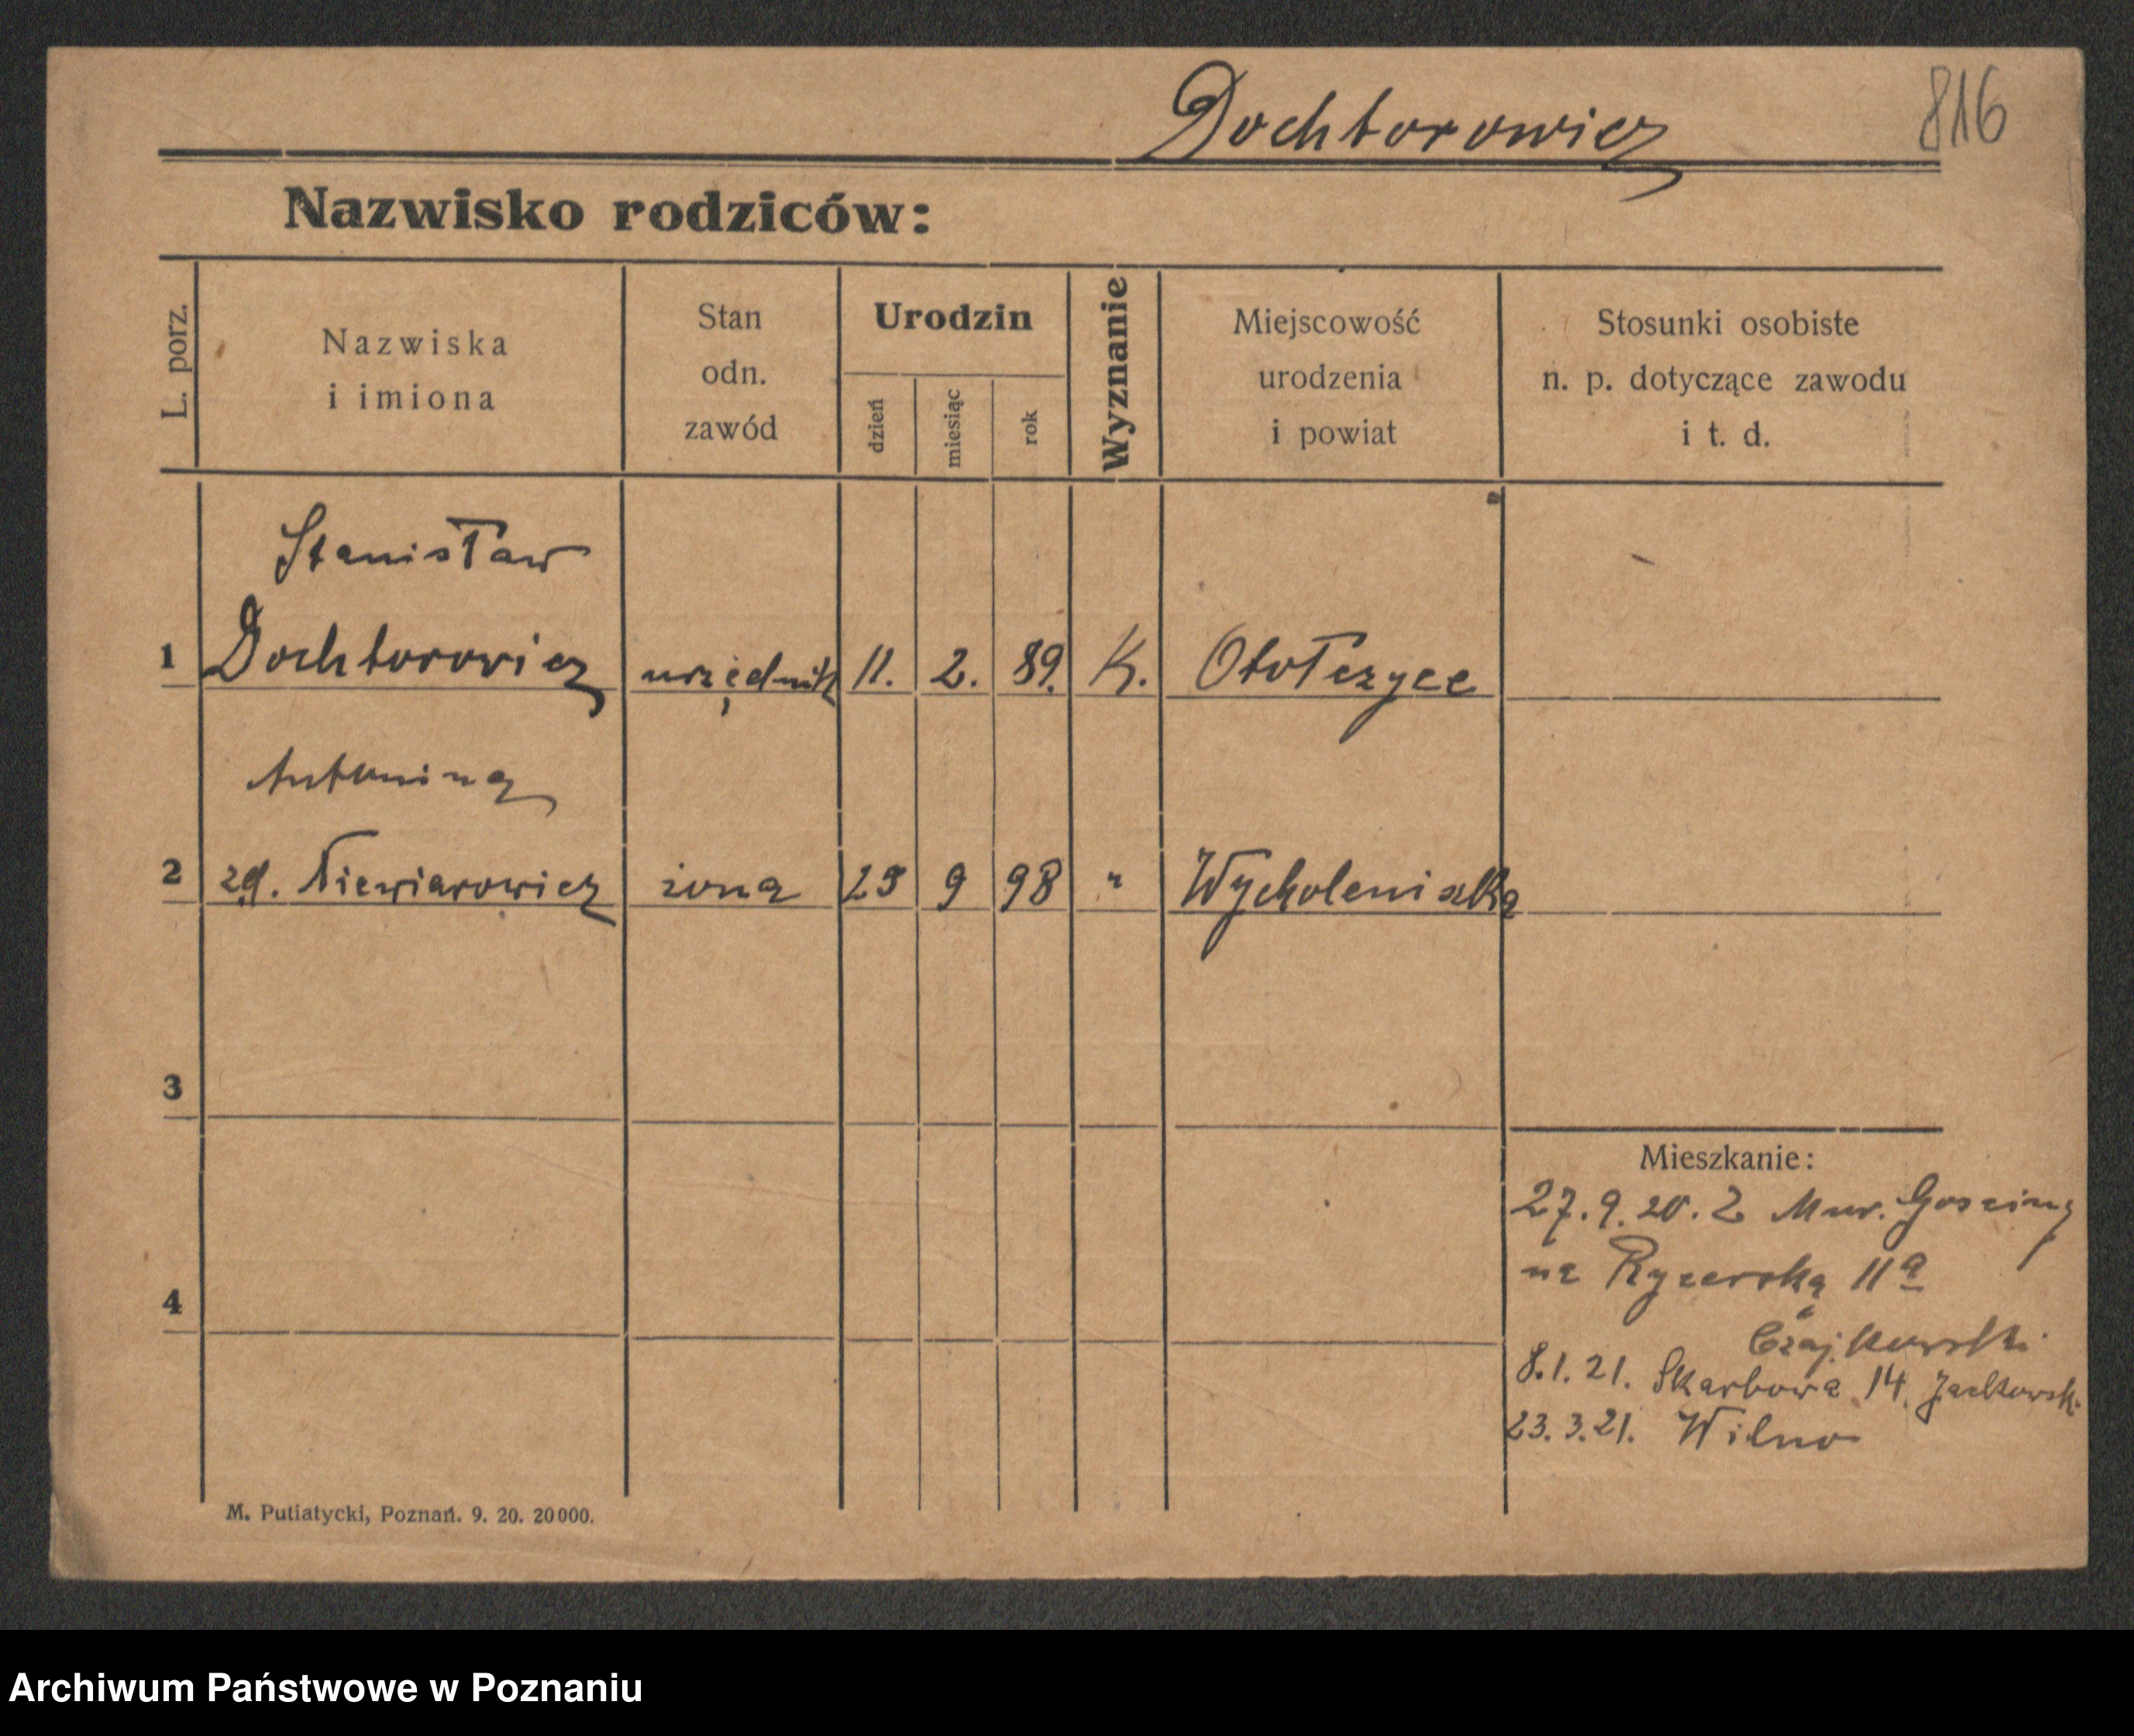 Dochtorowicz 816
Nazwisko rodziców:
L. porz.
Nazwiska
i imiona
Stan
odn.
zawód
Urodzin
dzień
miesiąc
rok
Wyznanie
Miejscowość
urodzenia
i powiat
Stosunki osobiste
n. p. dotyczące zawodu
i t. d.
Stanisław
1 Dochtorowicz urzędnik 11. 2. 89. K. Otołczyce
Antonina
2 zd. Niewiarowicz żona 25 9 98 "
3
4
Mieszkanie:
27.9.20. Z Mur. Gośliny
na Rycerską 11a
Czajkowski
8.1.21. Skarbowa 14. Jackowski
23.3.21. Wilno
M. Putiatycki, Poznań. 9. 20. 20000.
Archiwum Państwowe w Poznaniu